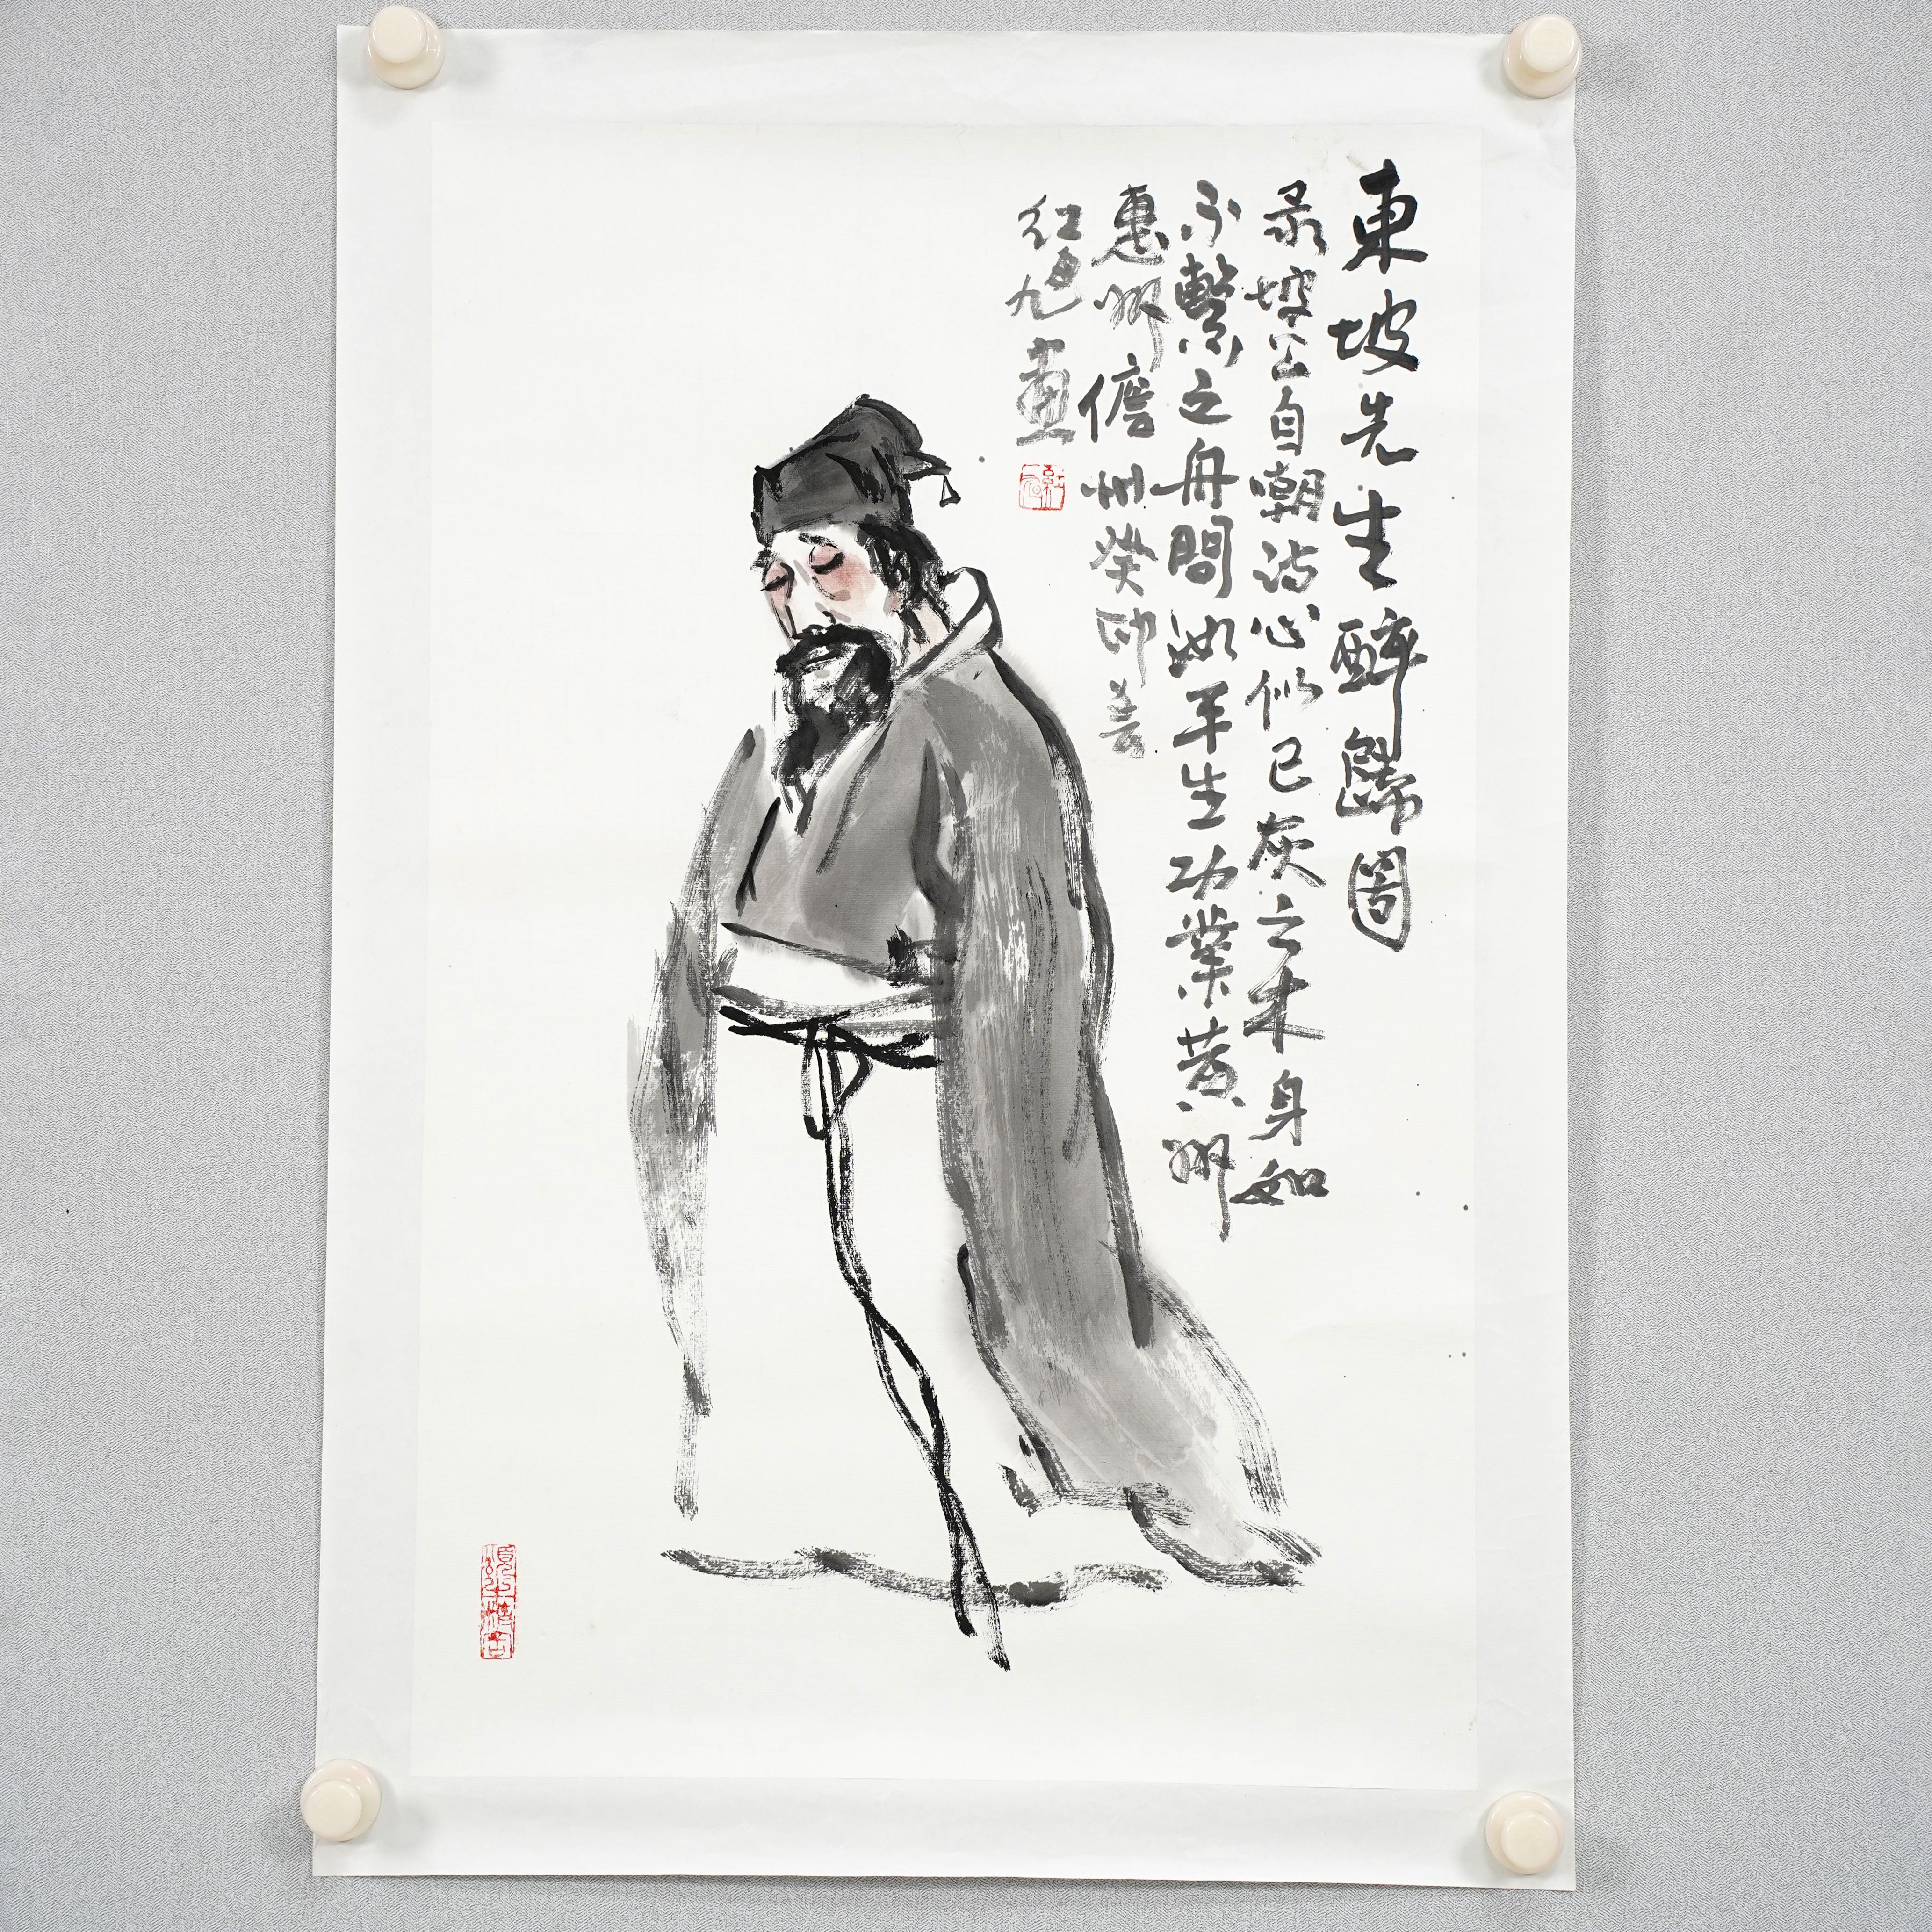 東坡先生醉歸圖
录坡公自嘲诗心似已灰之木身如
不繫之舟問汝平生功業黄州
惠州儋州癸卯
红旭畫